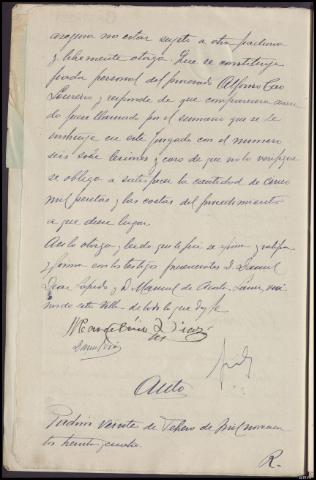 asegura no estar sujeto a otra fianza
y libremente otorga: Que se constituye
fiador personal del procesado Alfonso Ceo
Loureiro y responde de que comparecerá cuando
fuere llamado por el sumario que se le
instruye en este Juzgado con el número
seis sobre lesiones y caso de que no lo verifique
se obliga a satisfacer la cantidad de cinco
mil pesetas y las costas del procedimiento
a que diese lugar
Así lo otorga y leído que le fué se afirma y ratifica
y firma con los testigos presenciales D. Daniel
y D. Manuel de
de esta villa de todo lo que doy fe
Auto
Veinte de de mil novecien
tos treinta y cuatro
R.